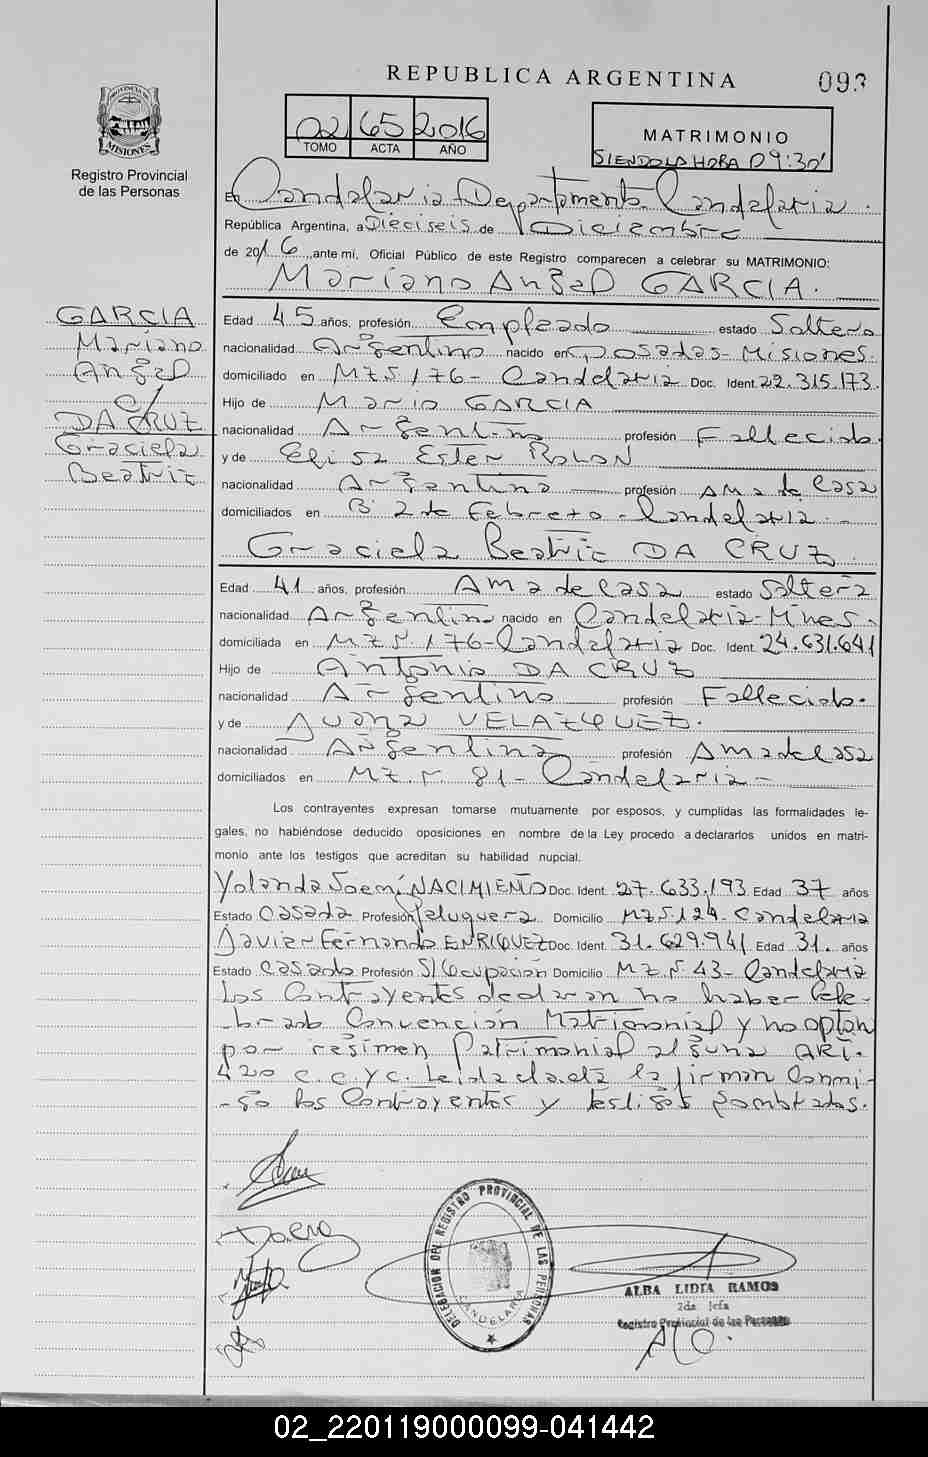 REPUBLICA ARGENTINA
093
PROVINCIA DE MISIONES
Registro Provincial
de las Personas
02 65 2016
TOMO ACTA AÑO
MATRIMONIO
SIENDO LA HORA 09:30'
En Candelaria - Departamento Candelaria.
República Argentina, a Dieciseis de Diciembre
de 2016, ante mi, Oficial Público de este Registro comparecen a celebrar su MATRIMONIO:
Mariano Angel GARCIA.
GARCIA
Mariano
Angel
c/
DA CRUZ
Graciela
Beatriz
Edad 45 años, profesión Empleado estado Soltero
nacionalidad Argentino nacido en Posadas- Misiones.
domiciliado en Mz 5 / 76 - Candelaria Doc. Ident. 22.315.173.
Hijo de Mario GARCIA
nacionalidad Argentino profesión Fallecido.
y de Elisa Ester ROLON
nacionalidad Argentina profesión Ama de Casa
domiciliados en B° 2 de Febrero - Candelaria. -
Graciela Beatriz DA CRUZ
Edad 41 años, profesión Ama de Casa estado Soltera
nacionalidad Argentina nacido en Candelaria- Mnes.
domiciliada en Mz 5 / 76 - Candelaria Doc. Ident. 24.631.641
Hijo de Antonio DA CRUZ
nacionalidad Argentino profesión Fallecido.
y de Juana VELAZQUEZ.
nacionalidad Argentina profesión Ama de Casa
domiciliados en Mz. 81 - Candelaria -
Los contrayentes expresan tomarse mutuamente por esposos, y cumplidas las formalidades le-
gales, no habiéndose deducido oposiciones en nombre de la Ley procedo a declararlos unidos en matri-
monio ante los testigos que acreditan su habilidad nupcial.
Yolanda Noemí NACIMIENTO Doc. Ident. 27.633.193 Edad 37 años
Estado Casada Profesión Peluquera Domicilio Mz 5.124. Candelaria
Javier Fernando ENRIQUEZ Doc. Ident. 31.629.941 Edad 31. años
Estado Casado Profesión S/Ocupación Domicilio Mz 43 - Candelaria
Los Contrayentes declaran no haber Cele-
-brado Convención Matrimonial y no optan
por regimen Patrimonial alguno ART.
420 C.C.y C. Leida el acta la firman Conmi-
-go los Contrayentes y testigos nombrados.
DELEGACION DEL REGISTRO PROVINCIAL DE LAS PERSONAS
CANDELARIA
ALBA LIDIA RAMOS
2da Jefa
Registro Provincial de las Personas
02_220119000099-041442